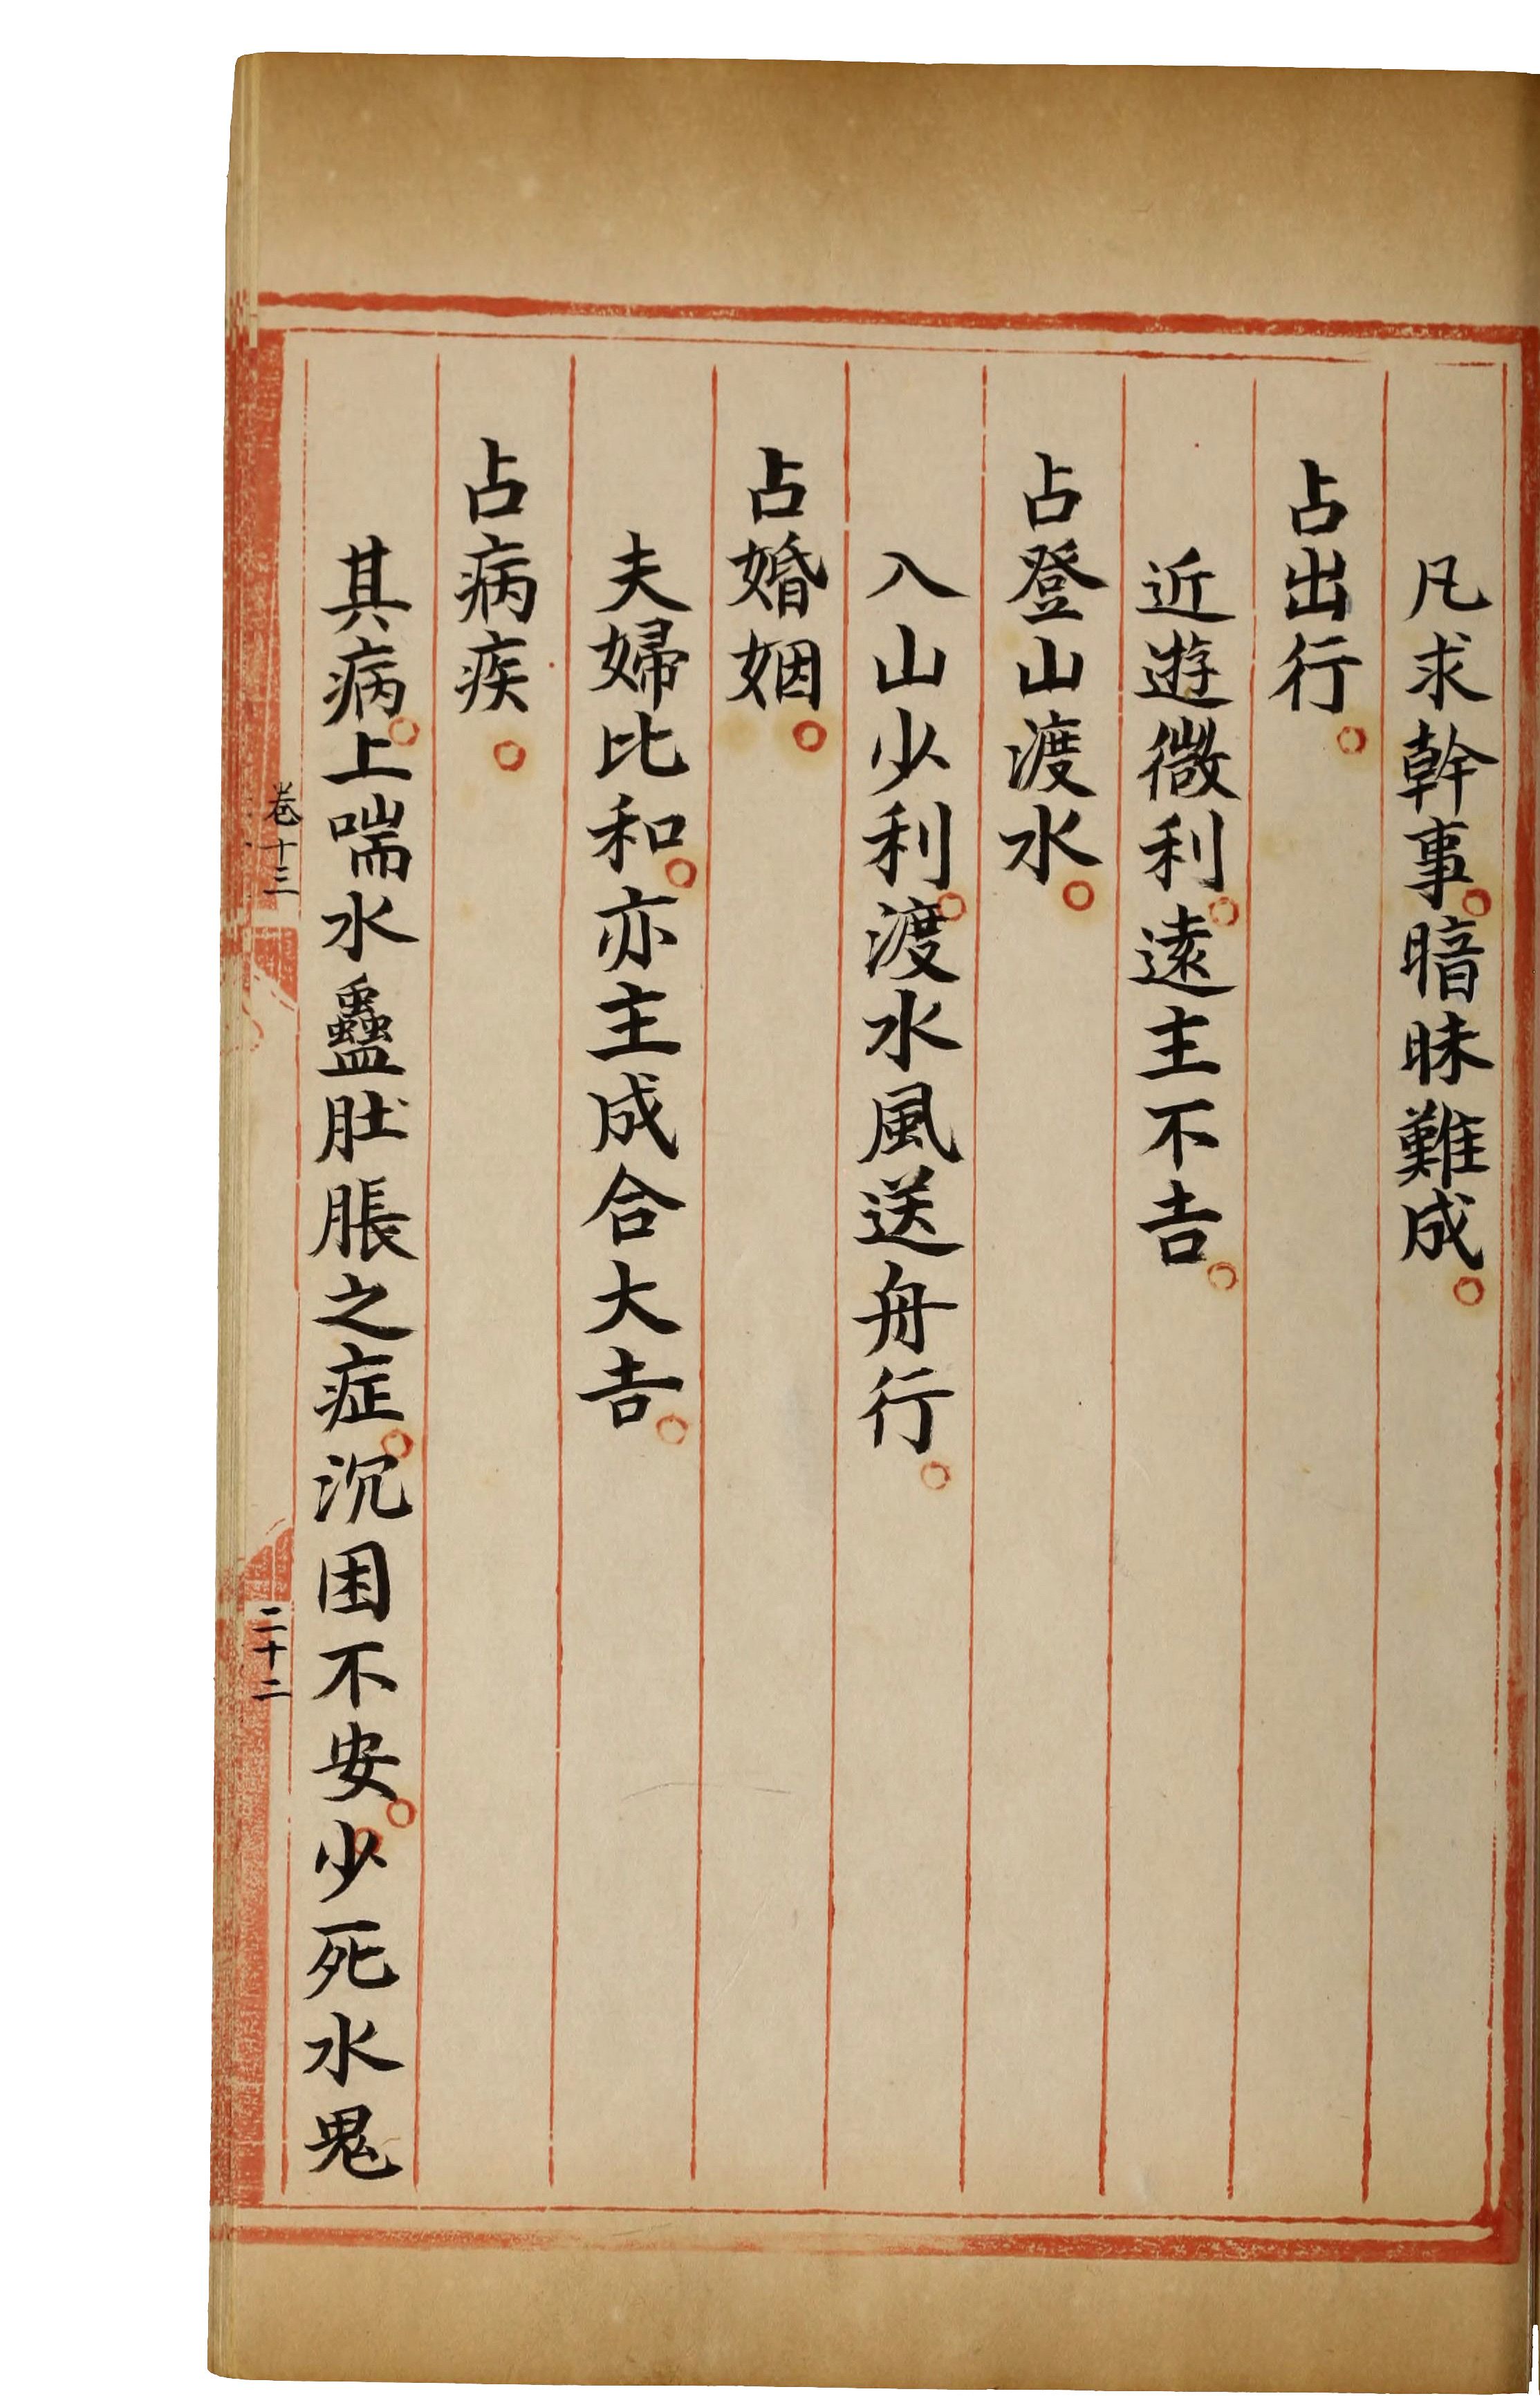 凡求幹事。暗昧難成。
占出行。
近遊微利。遠主不吉。
占登山渡水。
入山少利。渡水風送舟行。
占婚姻。
夫婦比和。亦主成合大吉。
占病疾。
其病。上喘水蠱肚脹之症。沉困不安。少死水鬼
卷十三
二十二